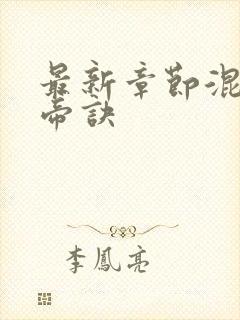 最新章節混
帝訣
李鳳亮